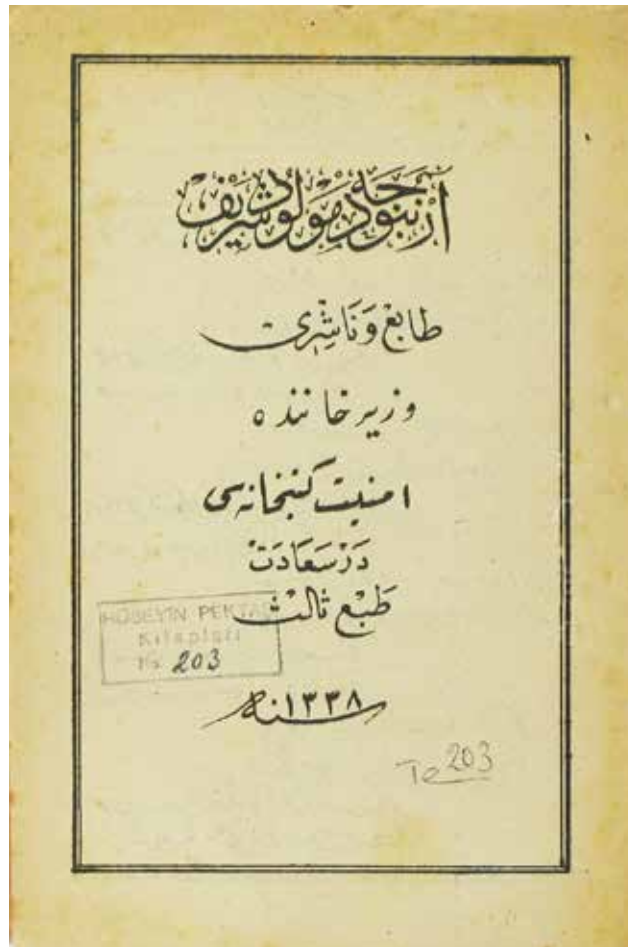 ارنبودجه مولود شريف
طابع و ناشری
وزير خاننده
امنيت كتبخانه‌سی
دَرْسَعَادَت
طَبْع ثالث
HÜSEYİN PEKTAŞ
Kitapları
No 203
سنه ۱۳۳۸
Te 203